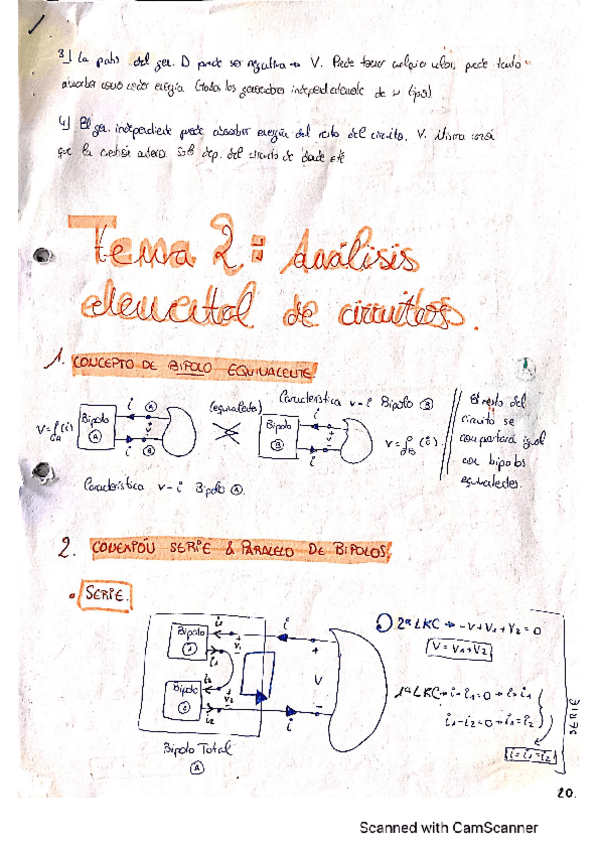 3) La pot. del gen. D puede ser negativa → V. Puede tener cualquier valor, puede tanto
absorber como ceder energía (todos los generadores independientemente de su tipo)
4) El gen. independiente puede absorber energía del resto del circuito. V. Misma
que la cuestión anterior. Solo dep. del circuito de donde esté
Tema 2: Análisis
elemental de circuitos.
1. CONCEPTO DE BIPOLO EQUIVALENTE:
Característica v-i Bipolo B
V=f(i)
Bipolo
A
i
A
+
v
-
i
B
(equivalentes)
Bipolo
B
i
+
v
-
i
v=f(i)
El resto del
circuito se
comportará igual
con bipolos
equivalentes.
Característica v-i Bipolo A.
2. CONEXIÓN SERIE & PARALELO DE BIPOLOS.
• SERIE.
Bipolo
1
i1
+
v1
-
i1
Bipolo
2
i2
+
v2
-
i2
i
+
V
-
i
Bipolo Total
A
2ª LKC → -V+V1+V2=0
V=V1+V2
1ª LKC → i-i1=0 → i=i1
i1-i2=0 → i1=i2
i=i1=i2
SERIE
20.
Scanned with CamScanner